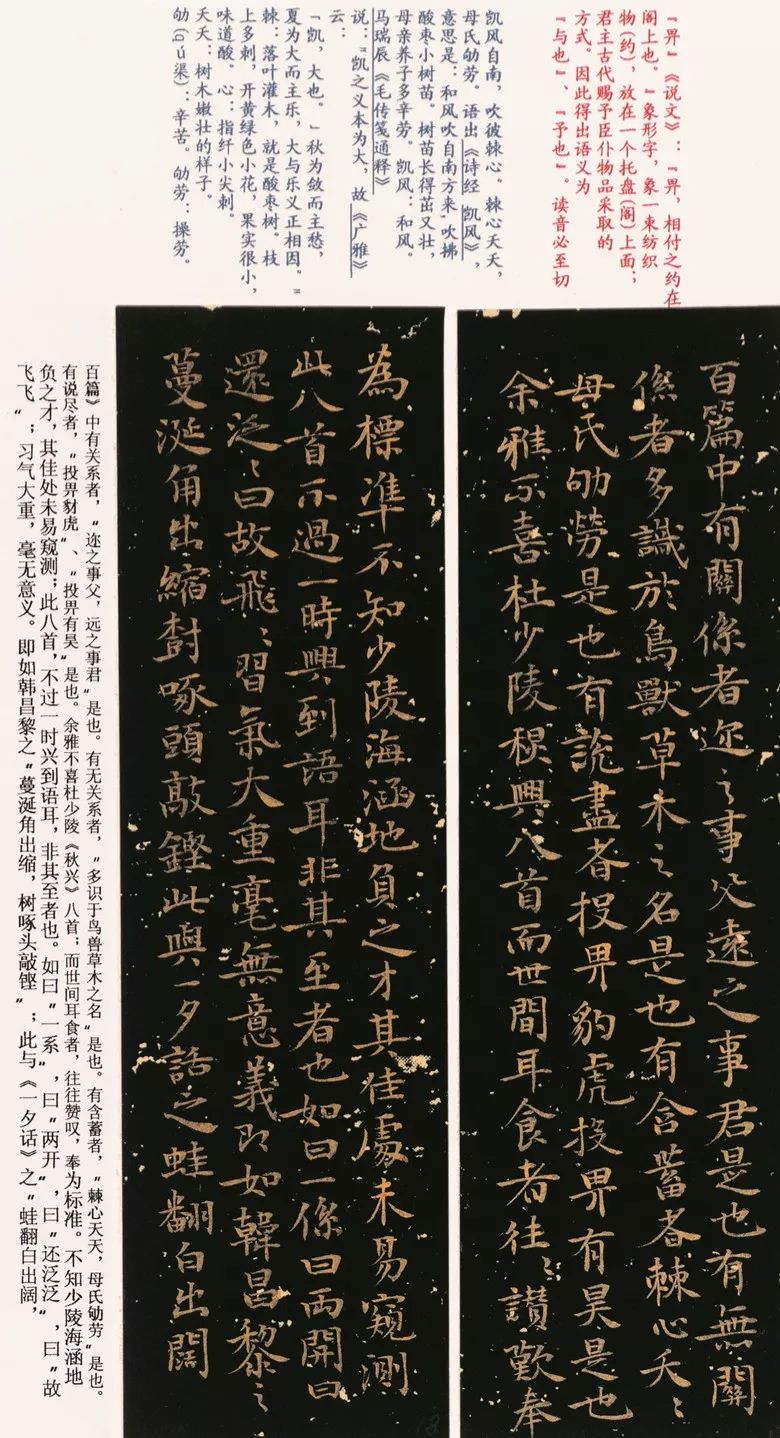 『畀』《说文》：『畀，相付之约在
阁上也。』象形字，象一束纺织
物(约)，放在一个托盘(阁)上面；
君主古代赐予臣仆物品采取的
方式。因此得出语义为
『与也』、『予也』。读音必至切
凯风自南，吹彼棘心。棘心夭夭，
母氏劬劳。语出《诗经 凯风》，
意思是：和风吹自南方来，吹拂
酸枣小树苗。树苗长得茁又壮，
母亲养子多辛劳。凯风：和风。
马瑞辰《毛传笺通释》
说："凯之义本为大，故《广雅》
云：
「凯，大也。」秋为敛而主愁，
夏为大而主乐，大与乐义正相因。"
棘：落叶灌木，就是酸枣树。枝
上多刺，开黄绿色小花，果实很小，
味道酸。心：指纤小尖刺。
夭夭：树木嫩壮的样子。
劬(qú渠)：辛苦。劬劳：操劳。
百篇中有關係者迩之事父遠之事君是也有無關
係者多識於鳥獸草木之名是也有含蓄者棘心夭〻
母氏劬勞是也有說盡者投畀豺虎投畀有昊是也
余雅不喜杜少陵秋興八首而世間耳食者往〻讃歎奉
為標準不知少陵海涵地負之才其佳處未易窺測
此八首不過一時興到語耳非其至者也如曰一係曰兩開曰
還泛〻曰故飛〻習氣大重毫無意義即如韓昌黎之
蔓涎角出縮樹啄頭敲鏗此與一夕話之蛙翻白出闊
百篇》中有关系者，"迩之事父，远之事君"是也。有无关系者，"多识于鸟兽草木之名"是也。有含蓄者，"棘心夭夭，母氏劬劳"是也。
有说尽者，"投畀豺虎"、"投畀有昊"是也。余雅不喜杜少陵《秋兴》八首；而世间耳食者，往往赞叹，奉为标准。不知少陵海涵地
负之才，其佳处未易窥测；此八首，不过一时兴到语耳，非其至者也。如曰"一系"，曰"两开"，曰"还泛泛"，曰"故
飞飞"；习气大重，毫无意义。即如韩昌黎之"蔓涎角出缩，树啄头敲铿"；此与《一夕话》之"蛙翻白出阔，